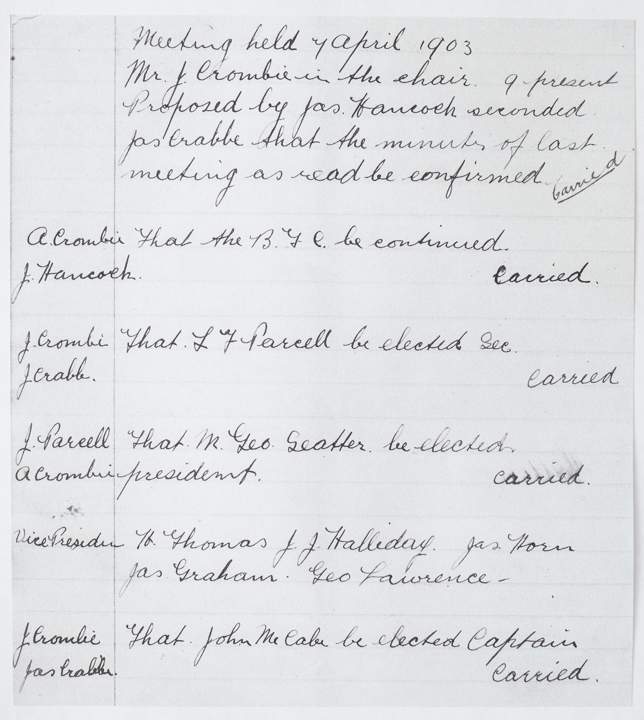 Meeting held 7 April 1903
Mr. J. Crombie in the chair. 9 present
Proposed by Jas. Hancock seconded
Jas Crabbe that the minutes of last
meeting as read be confirmed Carried
A. Crombie That the B. F C. be continued.
J. Hancock. Carried.
J. Crombi That. L F Parcell be elected Sec.
J. Crabb. Carried
J. Parcell That. M. Geo. Geatter. be elected.
A Crombie president. Carried.
Vice Presiden H. Thomas J. J. Halliday. Jas. Horn
Jas Graham. Geo Lawrence -
J Crombie That. John McCabe be elected Captain
Jas Crabbe. Carried.